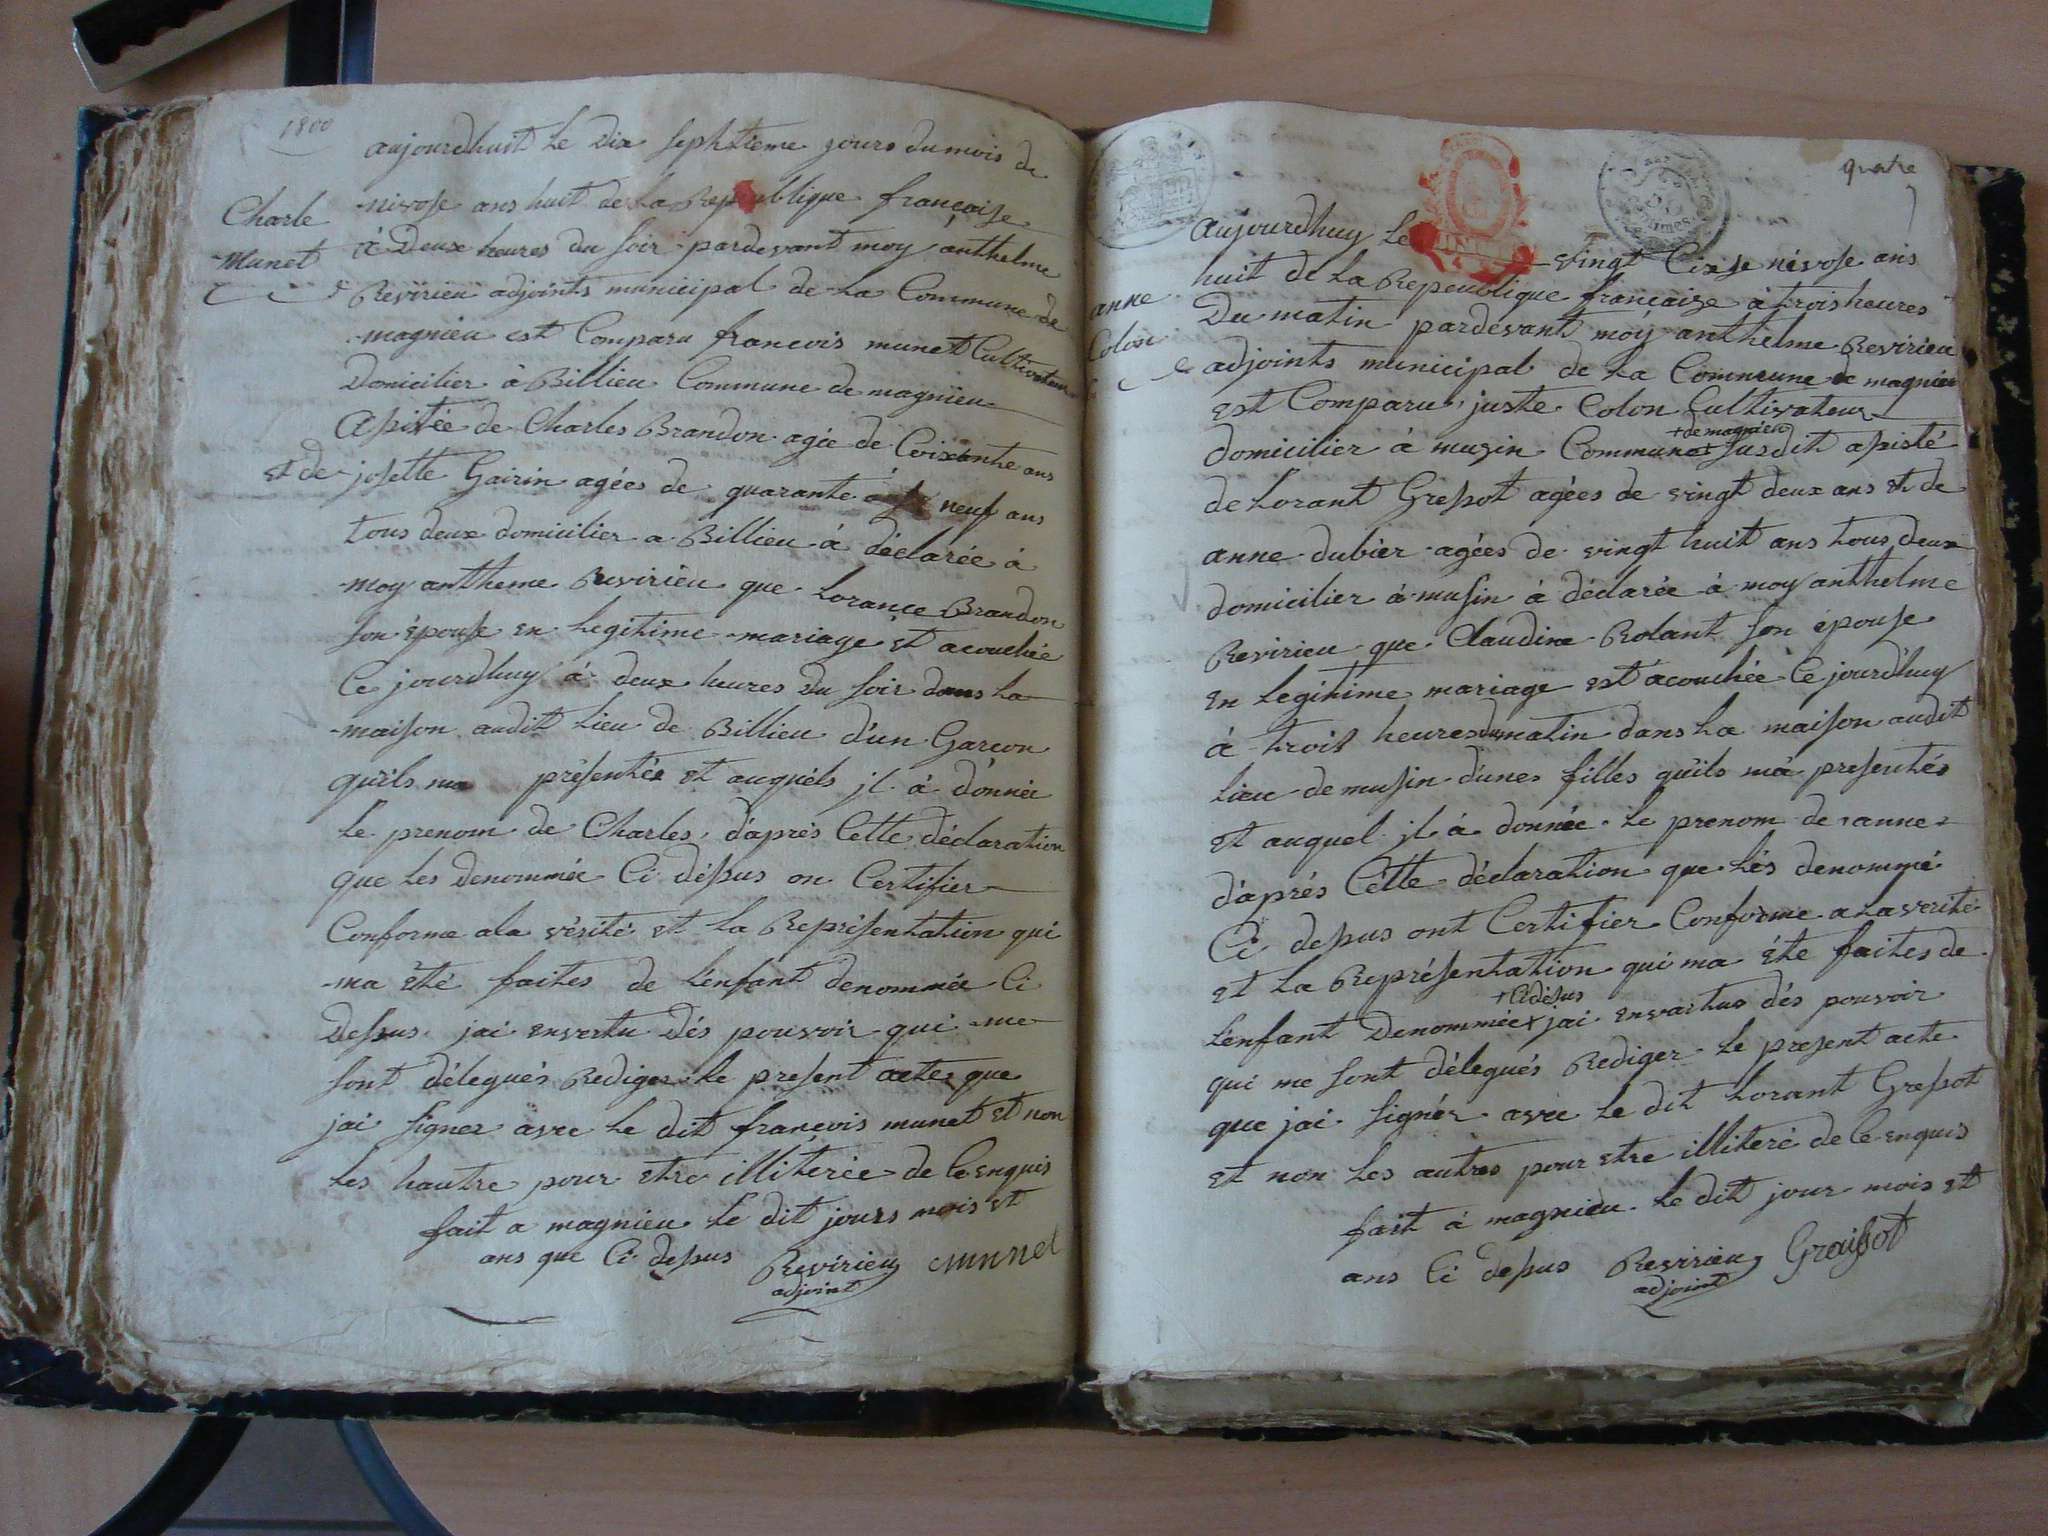 1800
aujourdhuit le Dix sephtieme jours du mois de
nivose ans huit de la Republique françaize
Charle
Munet
à Deux heures du soir pardevant moy anthelme
Revirieu adjoints municipal de la Commune de
magnieu est Comparu francois munet Cultivateur
Domicilier à Billieu Commune de magnieu
Apistée de Charles Brandon agée de Coixante ans
Et de josette Gairin agées de quarante neuf ans
tous deux domicilier a Billieu à déclarée à
moy antheme Revirieu que Lorance Brandon
son épouse en legitime mariage et acouchée
Ce jourdhuy à deux heures du soir dans la
maison audit lieu de Billieu d'un Garcon
quils ma présentée et auquels il à donnée
le prenom de Charles, d'aprés Cette déclaration
que les denommée Ci dépus on Certifier
Conforme ala vérité et la Représentation qui
ma été faites de l'enfant denommée Ci
Depus jai envertu dés pouvoir qui me
sont délegués Rediger le present actes que
jai signer avec le dit francois munet et non
les hautre pour etre illiterée de Ce enquis
fait a magnieu le dit jours mois et
ans que Ci depus Revirieu munet
adjoint
quatre
Aujourdhuy le vingt Cixse nivose ans
huit de la Repeublique françaize à trois heures
anne
Colon
Du matin pardevant moy anthelme Revirieu
adjoints municipal de la Commune de magnieu
est Comparu juste Colon Cultivateur
+ de magnieu
domicilier à muzin Commune + susdit apisté
de Lorant Grepot agées de vingt deux ans et de
anne dubier agées de vingt huit ans tous deux
domicilier à musin à déclarée à moy anthelme
Revirieu que Claudine Rolant son épouse
en legitime mariage est acouchée Ce jourdhuy
à trois heures du matin dans la maison audit
lieu de musin d'unes filles quils ma presentés
et auquel il à donnée le prenom de anne
d'aprés Cette déclaration que lés denommé
Ci depus ont Certifier Conforme a la verité
et la Représentation qui ma été faites de
+ Cidepus
l'enfant Denommée + jai envartus dés pouvoir
qui me sont délegués Rediger le present acte
que jai signér avec le dit Lorant Grepot
et non les autres pour etre illiteré de Ce enquis
fait à magnieu le dit jour mois et
ans Ci depus Revirieu Graissot
adjoint